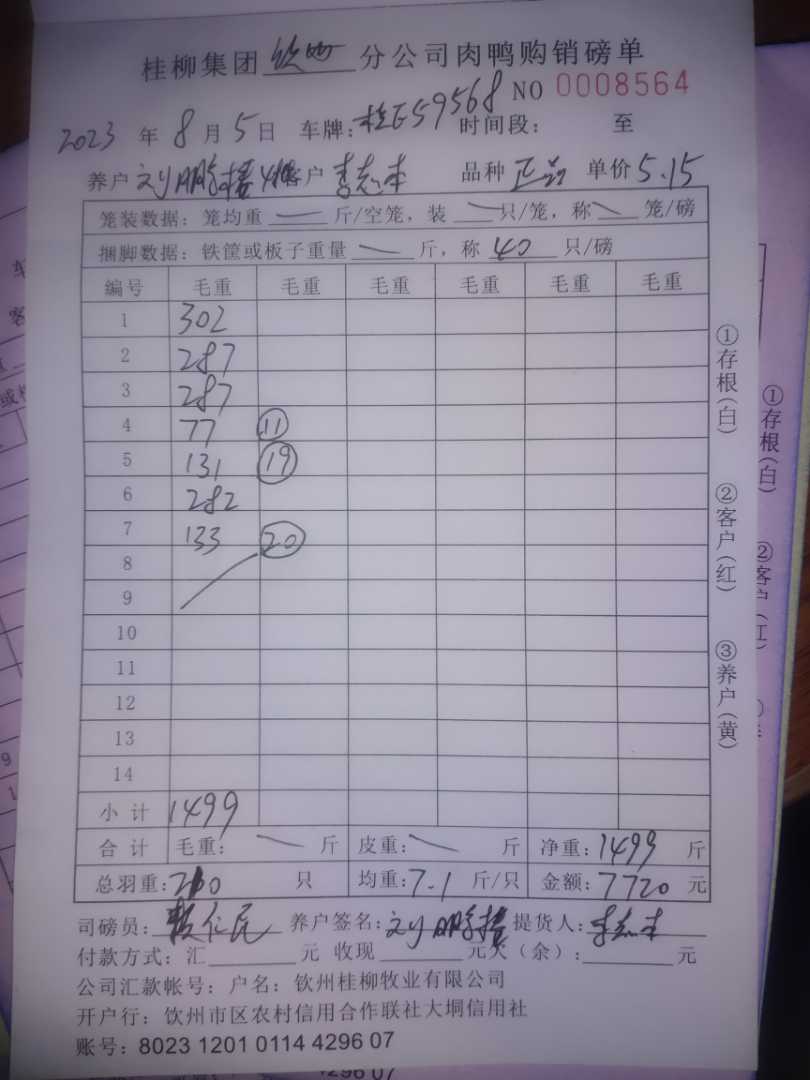 桂柳集团 钦州 分公司肉鸭购销磅单
NO 0008564
2023 年 8 月 5 日 车牌：桂E59568 时间段： 至
养户 刘鹏 客户 李志 品种 正品 单价 5.15
笼装数据：笼均重 — 斤/空笼，装 — 只/笼，称 — 笼/磅
捆脚数据：铁筐或板子重量 — 斤，称 40 只/磅
编号 毛重 毛重 毛重 毛重 毛重 毛重
1 302
2 287
3 287
4 77 11
5 131 19
6 282
7 133 20
8
9
10
11
12
13
14
小计 1499
合计 毛重： — 斤 皮重： — 斤 净重：1499 斤
总羽重：210 只 均重：7.1 斤/只 金额：7720 元
司磅员： 仁 养户签名：刘鹏 提货人：李志
付款方式：汇 元 收现 元欠（余）： 元
公司汇款帐号：户名：钦州桂柳牧业有限公司
开户行：饮州市区农村信用合作联社大垌信用社
账号：8023 1201 0114 4296 07
①存根(白)
②客户(红)
③养户(黄)
①存根(白)
②客户
4296 07